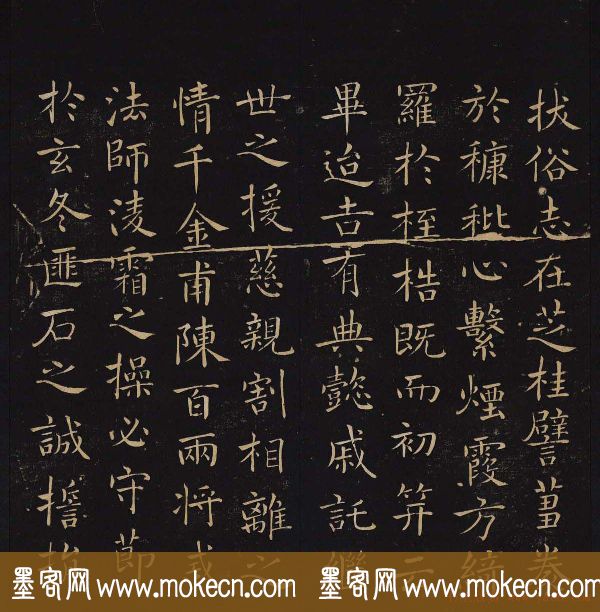 拔俗志在芝桂譬葍
於穅秕心繫煙霞方
羅於桎梏既而初笄二
畢迨吉有典懿戚託
世之援慈親割相離之
情千金甫陳百兩将
法師淩霜之操必守節
於玄冬匪石之誠
墨客网 www.mokecn.com 墨客网 www.mokecn.com